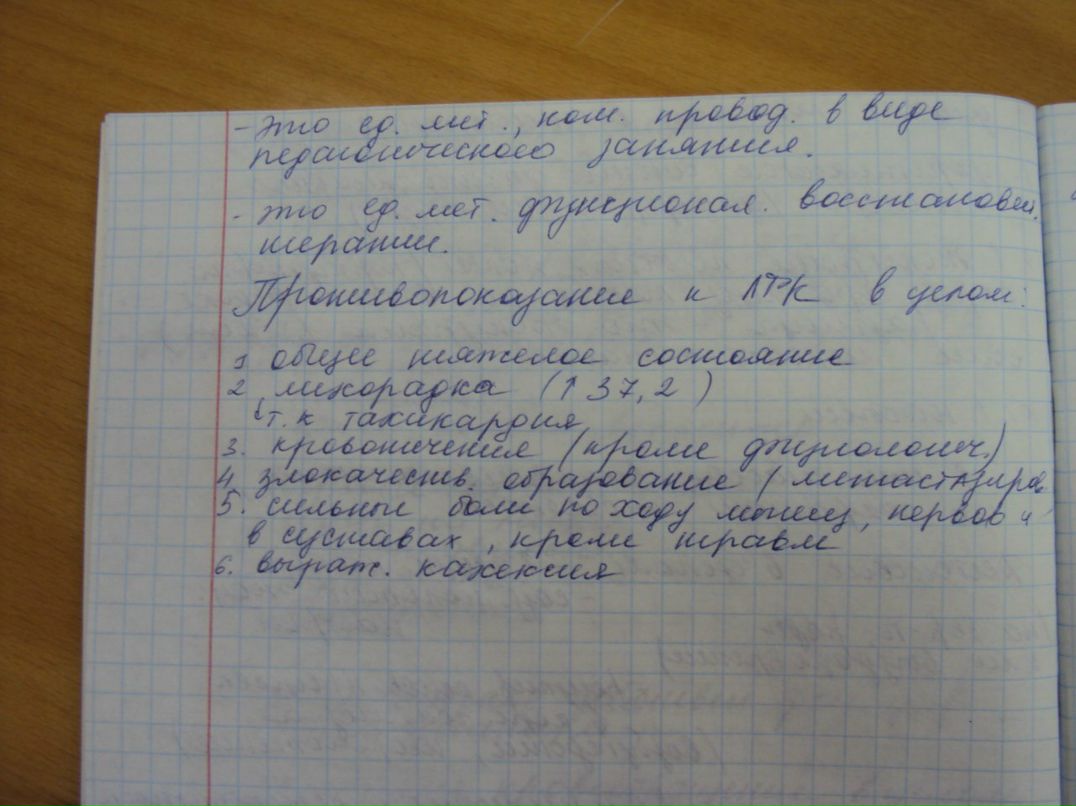 - это ед. мет., кот. провод. в виде
педагогического занятия.
- это ед. мет. функционал. восстановит.
терапии.
Противопоказания к ЛФК в целом:
1 общее тяжелое состояние
2, лихорадка (↑37,2)
т.к тахикардия
3. кровотечения (кроме физиологич.)
4, злокачеств. образование (метастазиров
5. сильные боли по ходу мышц, нервов и
в суставах, кроме травм
6. выраж. кахексия